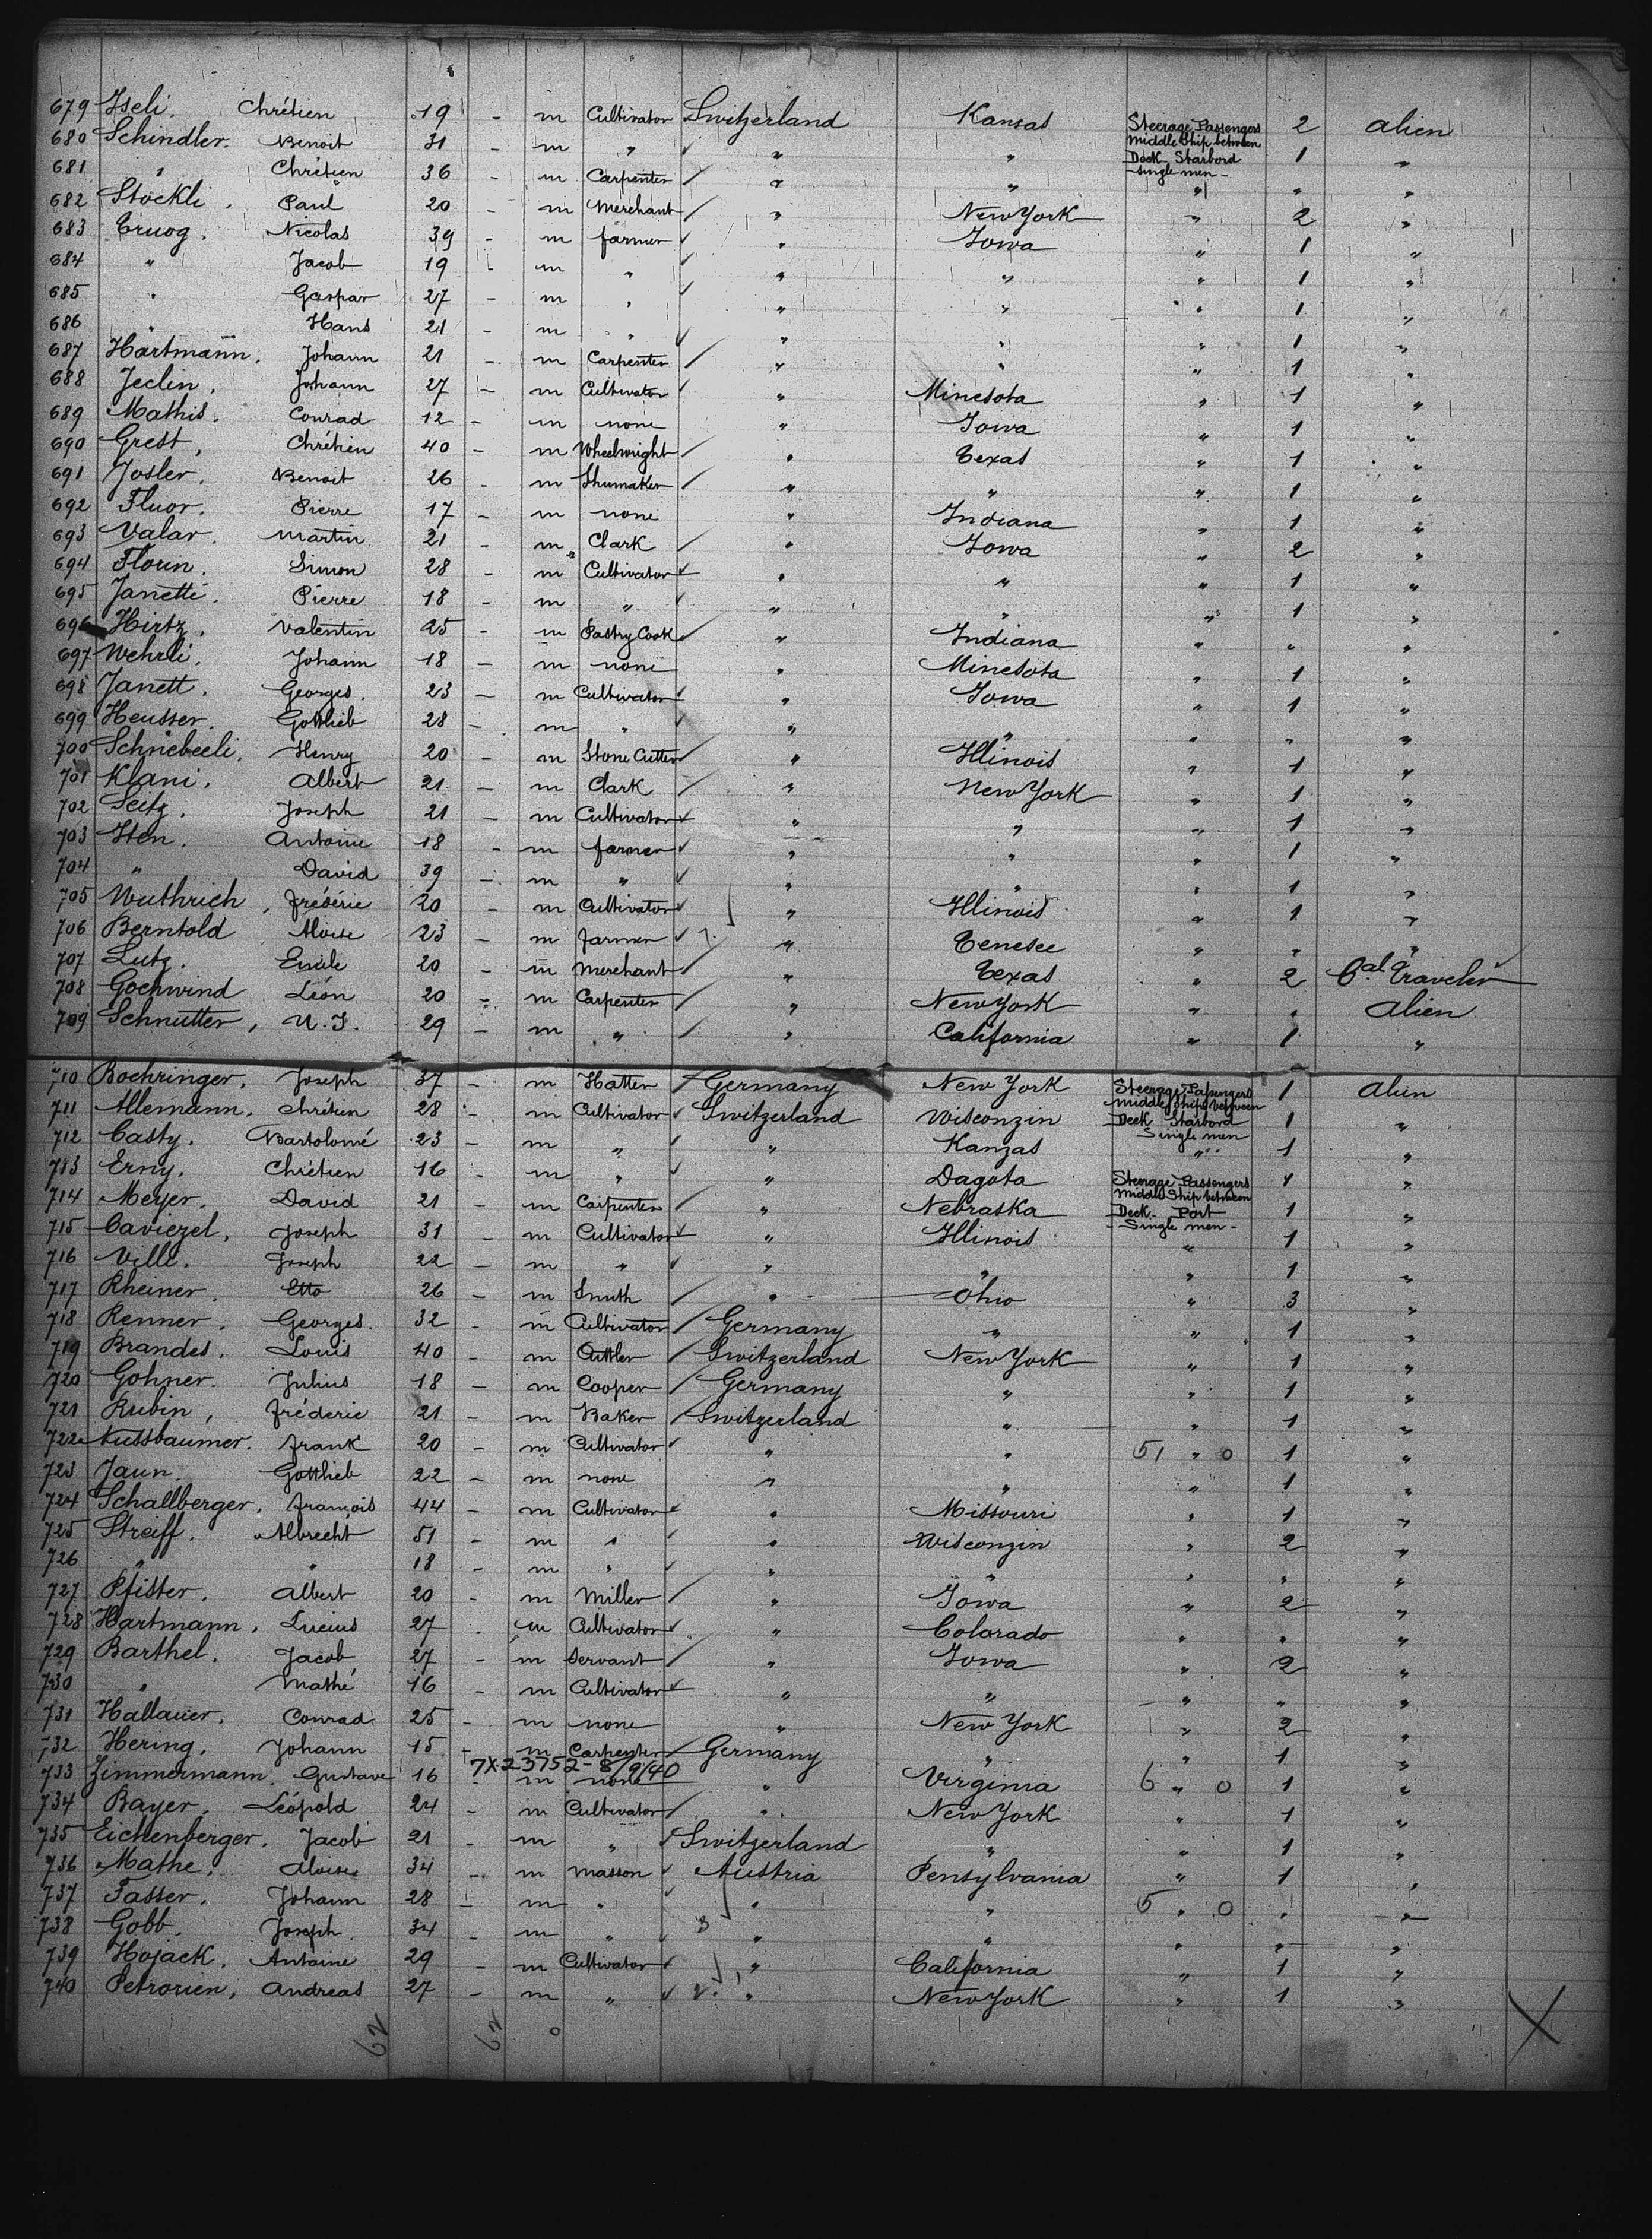 679 Iseli. Chrétien 19 - m Cultivator Switzerland Kansas Steerage Passengers Middle Ship between Deck Starbord single men - 2 alien
680 Schindler. Benoit 31 - m " " " 1 "
681 " Chrétien 36 - m Carpenter " " " "
682 Stockli. Paul 20 - m Merchant " New York " 2 "
683 Truog. Nicolas 39 - m farmer " Iowa " 1 "
684 " Jacob 19 - m " " " " 1 "
685 " Gaspar 27 - m " " " " 1 "
686 " Hans 21 - m " " " " 1 "
687 Hartmann. Johann 21 - m Carpenter " " " 1 "
688 Jeclin. Johann 27 - m Cultivator " Minesota " 1 "
689 Mathis. Conrad 12 - m none " Iowa " 1 "
690 Grest, Chrétien 40 - m Wheelwright " Texas " 1 "
691 Josler. Benoit 26 - m Shumaker " " " 1 "
692 Fluor. Pierre 17 - m none " Indiana " 1 "
693 Valar. Martin 21 - m Clark " Iowa " 2 "
694 Florin. Simon 28 - m Cultivator " " " 1 "
695 Janetti. Pierre 18 - m " " " " 1 "
696 Hirtz. Valentin 25 - m Pastry Cook " Indiana " " "
697 Wehrli. Johann 18 - m none " Minesota " 1 "
698 Janett. Georges. 23 - m Cultivator " Iowa " 1 "
699 Heusser. Gottlieb 28 - m " " " " " "
700 Schnebeeli. Henry 20 - m Stone Cutter " Illinois " 1 "
701 Klani. Albert 21 - m Clark " New York " 1 "
702 Seitz. Joseph 21 - m Cultivator " " " 1 "
703 Iten. Antoine 18 - m farmer " " " 1 "
704 " David 39 - m " " " " 1 "
705 Wuthrich, Fréderic 20 - m Cultivator " Illinois " 1 "
706 Berntold Aloise 23 - m Farmer " Tenesee " " "
707 Lutz. Emile 20 - m Merchant " Texas " 2 Cal Traveler
708 Gschwind Léon 20 - m Carpenter " New York " " Alien
709 Schnutter, U. J. 29 - m " " California " 1 "
710 Boehringer. Joseph 37 - m Hatter Germany New York Steerage Passengers Middle Ship between Deck Starbord Single men 1 alien
711 Allemann. Chrétien 28 - m Cultivator Switzerland Wisconzin 1 "
712 Casty. Bartolomé 23 - m " " Kanzas " 1 "
713 Erny. Chrétien 16 - m " " Dagota Steerage Passengers Middle Ship between Deck. Port - Single men - 1 "
714 Meyer. David 21 - m Carpenter " Nebraska 1 "
715 Caviezel. Joseph 31 - m Cultivator " Illinois " 1 "
716 Villi. Joseph 22 - m " " " " 1 "
717 Rheiner. Etto 26 - m Smith " Ohio " 3 "
718 Renner. Georges. 32 - m Cultivator Germany " " 1 "
719 Brandes. Louis 40 - m Cuttler Switzerland New York " 1 "
720 Gohner. Julius 18 - m Cooper Germany " " 1 "
721 Rubin, Fréderic 21 - m Baker Switzerland " " 1 "
722 Nussbaumer. Frank 20 - m Cultivator " " 51 " 0 1 "
723 Jaun. Gottlieb 22 - m none " " " 1 "
724 Schallberger. François 44 - m Cultivator " Missouri " 1 "
725 Streiff. Albrecht 51 - m " " Wisconzin " 2 "
726 " " 18 - m " " " " " "
727 Pfister. Albert 20 - m Miller " Iowa " 2 "
728 Hartmann. Lucius 27 m Cultivator " Colorado " " "
729 Barthel. Jacob 27 - m Servant " Iowa " 2 "
730 " Mathé 16 - m Cultivator " " " " "
731 Hallauer. Conrad 25 - m none " New York " 2 "
732 Hering. Johann 15 - m Carpenter Germany " " 1 "
7X-23752-8/9/40
733 Zimmermann. Gustave 16 - m none " Virginia 6 " 0 1 "
734 Bayer. Léopold 24 - m Cultivator " New York " 1 "
735 Eichenberger. Jacob 21 - m " Switzerland " " 1 "
736 Mathe. Aloise 34 - m Masson Austria Pensylvania " 1 "
737 Fasser. Johann 28 - m " " " 5 " 0 " "
738 Gobb. Joseph. 34 - m " " " " " "
739 Hojack. Antoine 29 - m Cultivator " California " 1 "
740 Petrorien, Andreas 27 - m " " New York " 1 "
62 62 0